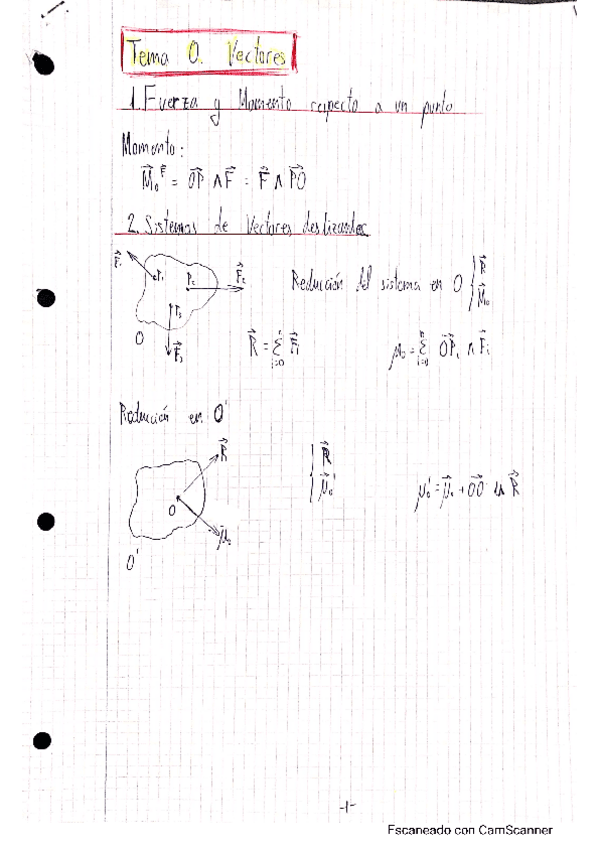 Tema 0. Vectores
1. Fuerza y Momento respecto a un punto
Momento:
M⃗₀^F⃗ = OP⃗ ∧ F⃗ = F⃗ ∧ PO⃗
2. Sistemas de Vectores deslizandes
F⃗₁ P₁ P₂ F⃗₂ P₃ F⃗₃ O
Reducción del sistema en O { R⃗ M⃗₀
R⃗ = Σ F⃗i
μ₀ = Σ OP⃗i ∧ F⃗i
Reducción en O'
R⃗ O μ⃗₀ O'
{ R⃗ μ⃗₀'
μ₀' = μ⃗₀ + O'O⃗ ∧ R⃗
-1-
Escaneado con CamScanner